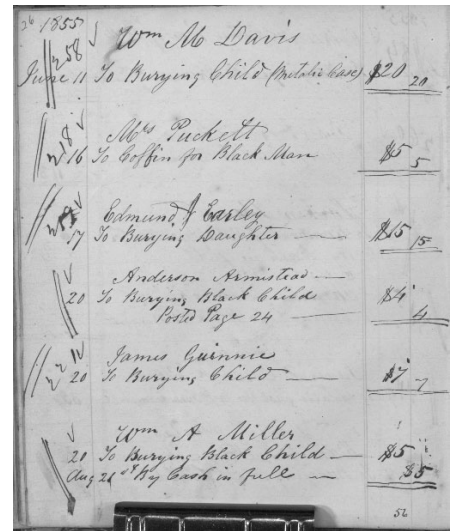 26 1855
Wm M Davis
June 11 To Burying Child (Metalic Case) $20 20
Mrs Puckett
16 To Coffin for Black Man $5 5
Edmund J Earley
17 To Burying Daughter $15 15
Anderson Armistead
20 To Burying Black Child $4
Posted Page 24 4
James Guinnie
20 To Burying Child $7 7
Wm A Miller
20 To Burying Black Child $5
Aug 21st By Cash in full $5